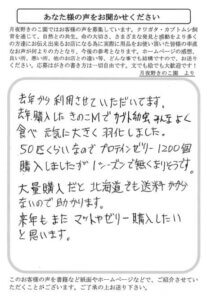 あなた様の声をお聞かせください
月夜野きのこ園ではお客様の声を募集しています。クワガタ・カブトムシ飼
育を通じて、自然との共生、命の大切さ、さまざまな発見と感動をより多く
の方達にお伝え出来るお店になる為に実際に用品をお使い頂いたお客様の率直
なお声が何よりの力となり、今後の参考となります。ホームページの感想、
良い所、悪い所、他のお店との違い等、どんな事でも結構ですので、お送り
ください。応募はがきの書き方は一切自由です。文でも絵でも大歓迎です！
月夜野きのこ園 より
去年から利用させていただいてます。
去年購入したきのこMでヤクト幼虫みんなよく
食べ元気に大きく羽化しました。
50匹くらいなのでプロテインゼリー1200個
購入しましたが1シーズンで無くなりそうです。
大量購入だと北海道でも送料がかから
ないので助かります。
来年もまたマットやゼリー購入したい
と思います。
このお客様の声を書籍など紙面やホームページなどで、ご紹介させてい
ただくことがございます。ご了承の上お送り下さい。